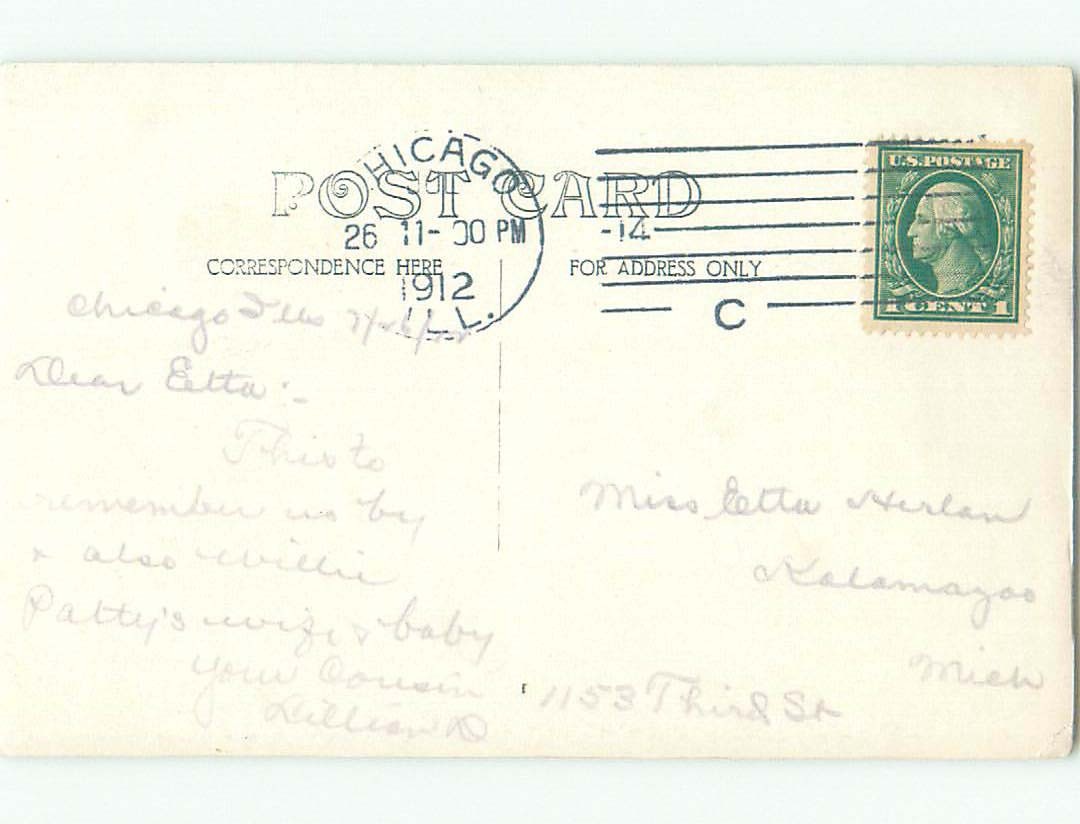 POST CARD
CHICAGO
26 11-00 PM
1912
ILL.
-14
C
U.S. POSTAGE
1 CENT 1
CORRESPONDENCE HERE
FOR ADDRESS ONLY
Chicago Ills
Dear Etta :-
This to
remember us by
& also Willie
Patty's wife & baby
Your Cousin
Lillian D
Miss Etta Herlan
Kalamazoo
Mich
1153 Third St